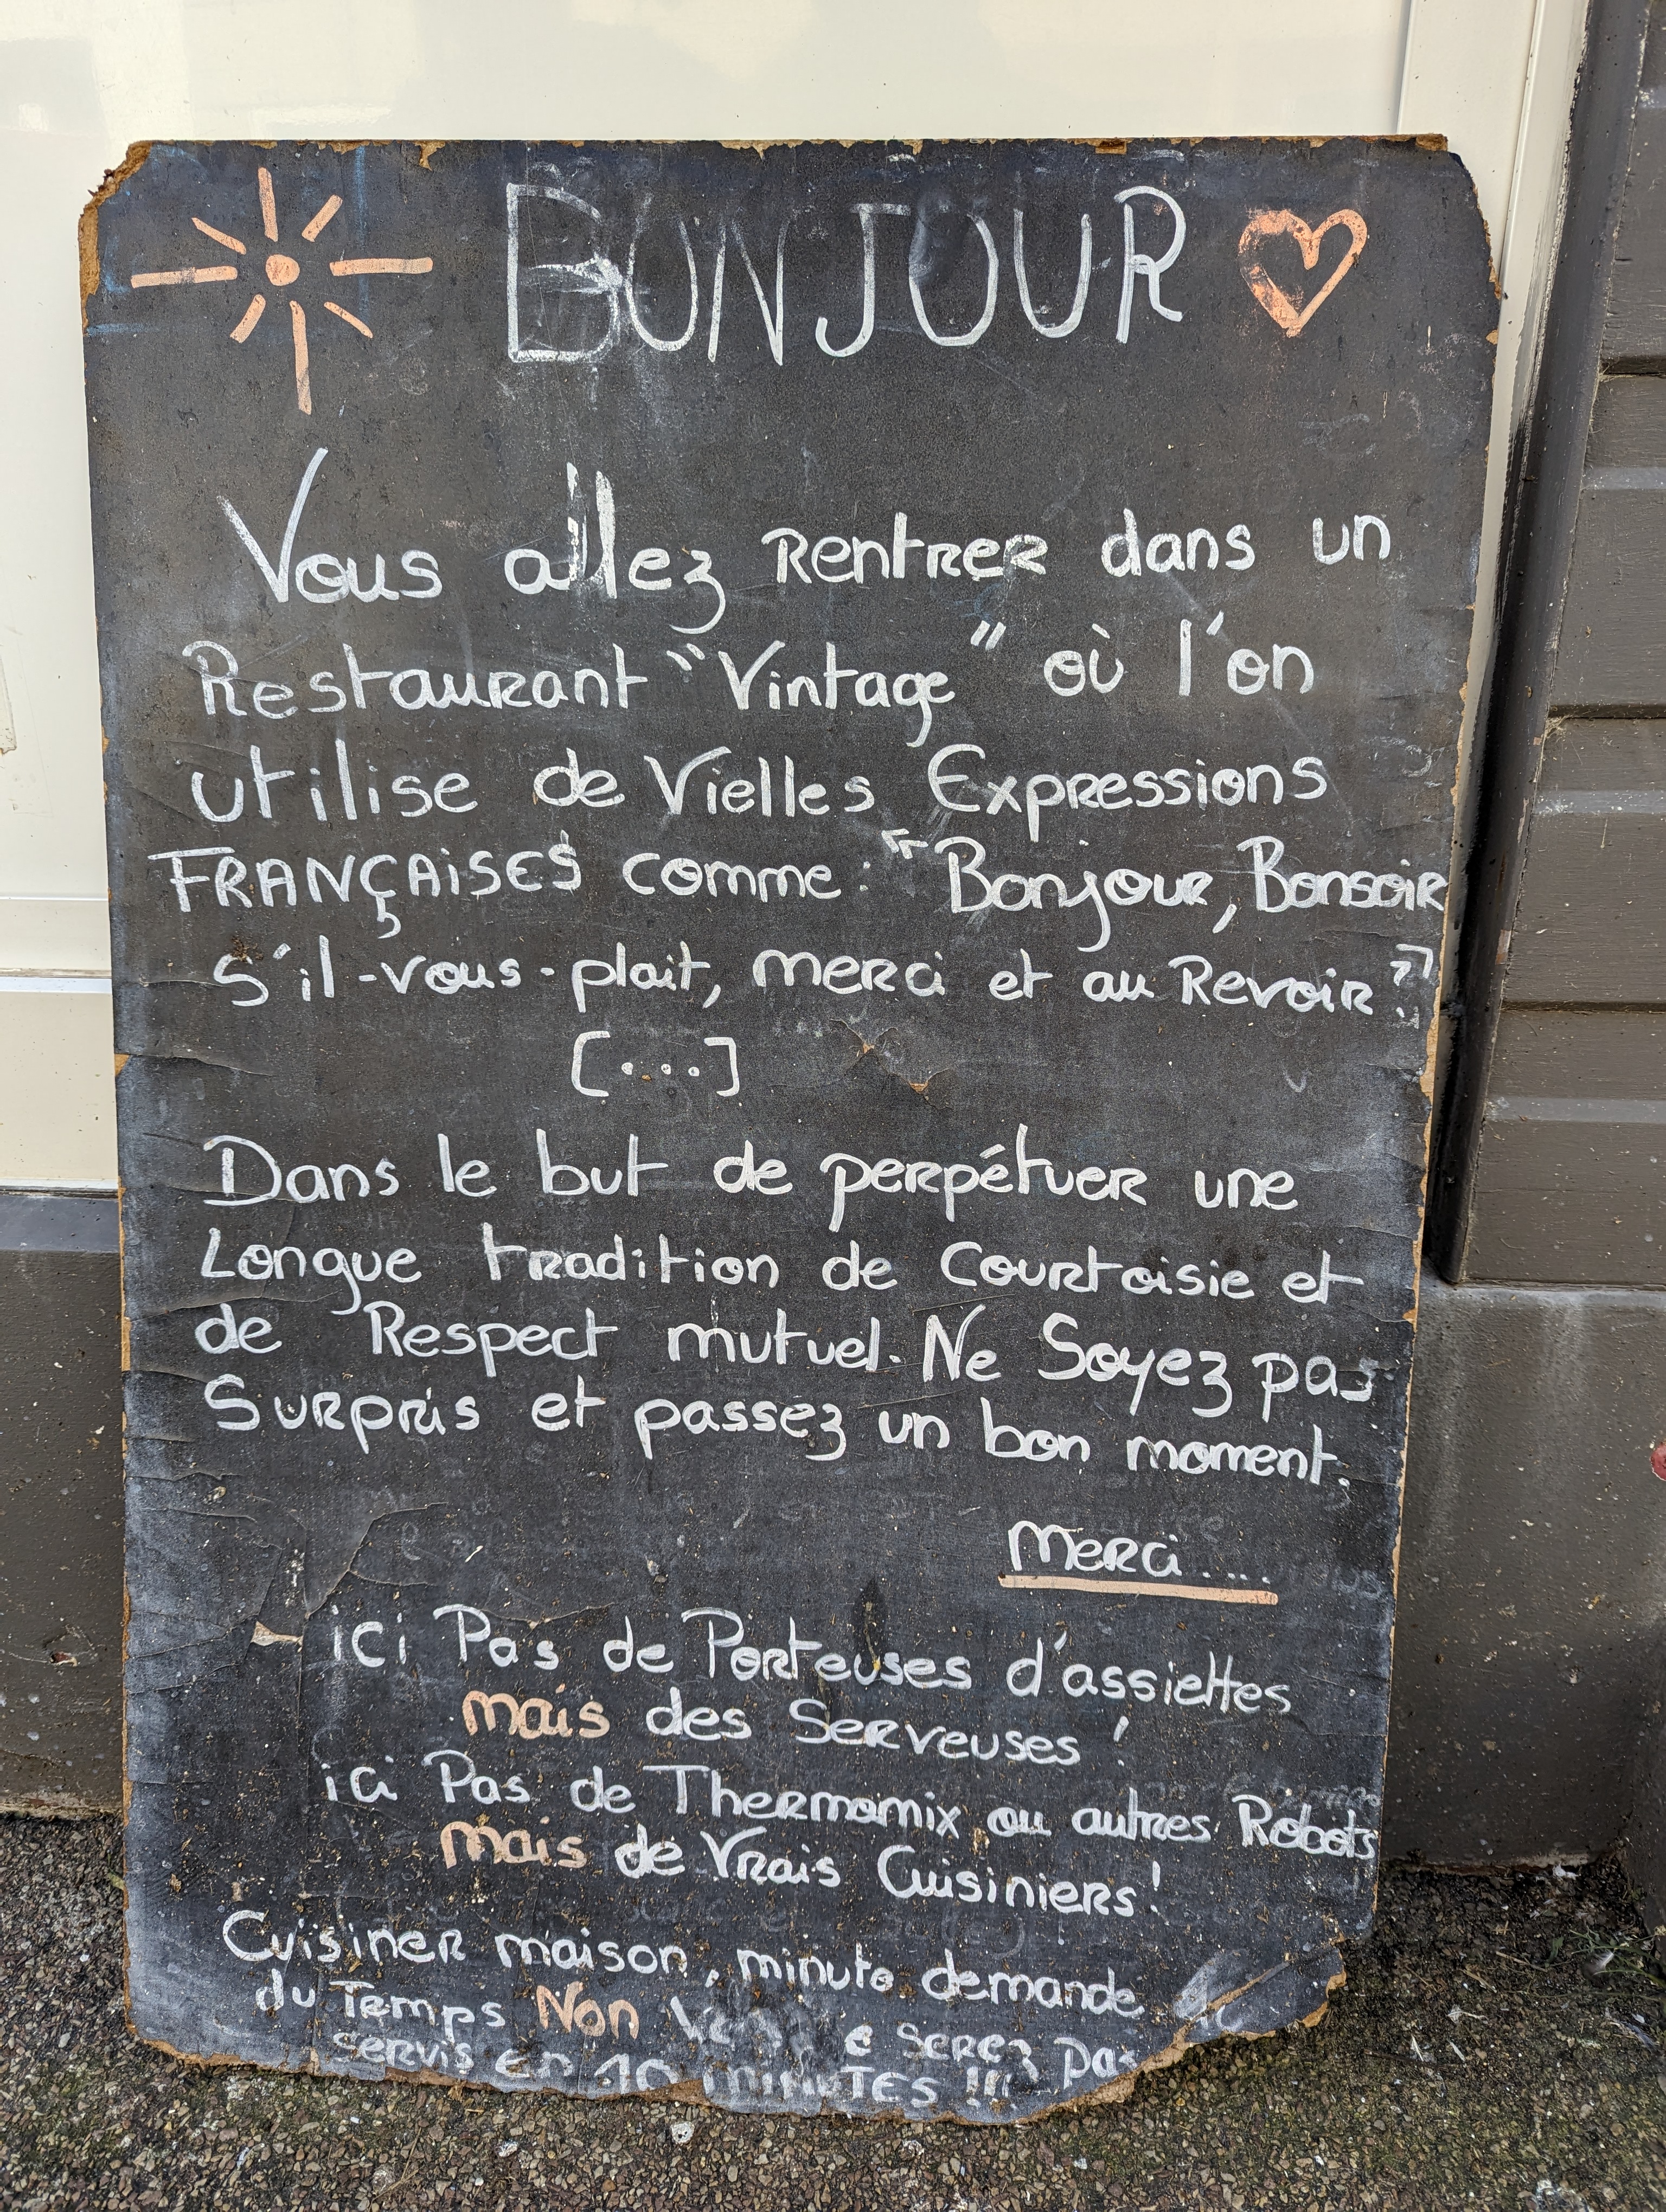 BONJOUR
Vous allez Rentrer dans un
Restaurant "Vintage" où l'on
utilise de Vielles Expressions
FRANÇAISES comme : "Bonjour, Bonsoir
s'il-vous-plait, merci et au Revoir"
[...]
Dans le but de perpétuer une
Longue tradition de Courtoisie et
de Respect mutuel. Ne Soyez pas
Surpris et passez un bon moment.
Merci....
ici Pas de Porteuses d'assiettes
mais des Serveuses !
ici Pas de Thermomix ou autres Robots
mais de Vrais Cuisiniers !
Cuisiner maison, minute demande
du Temps Non serez pas
servis en 10 minutes !!!